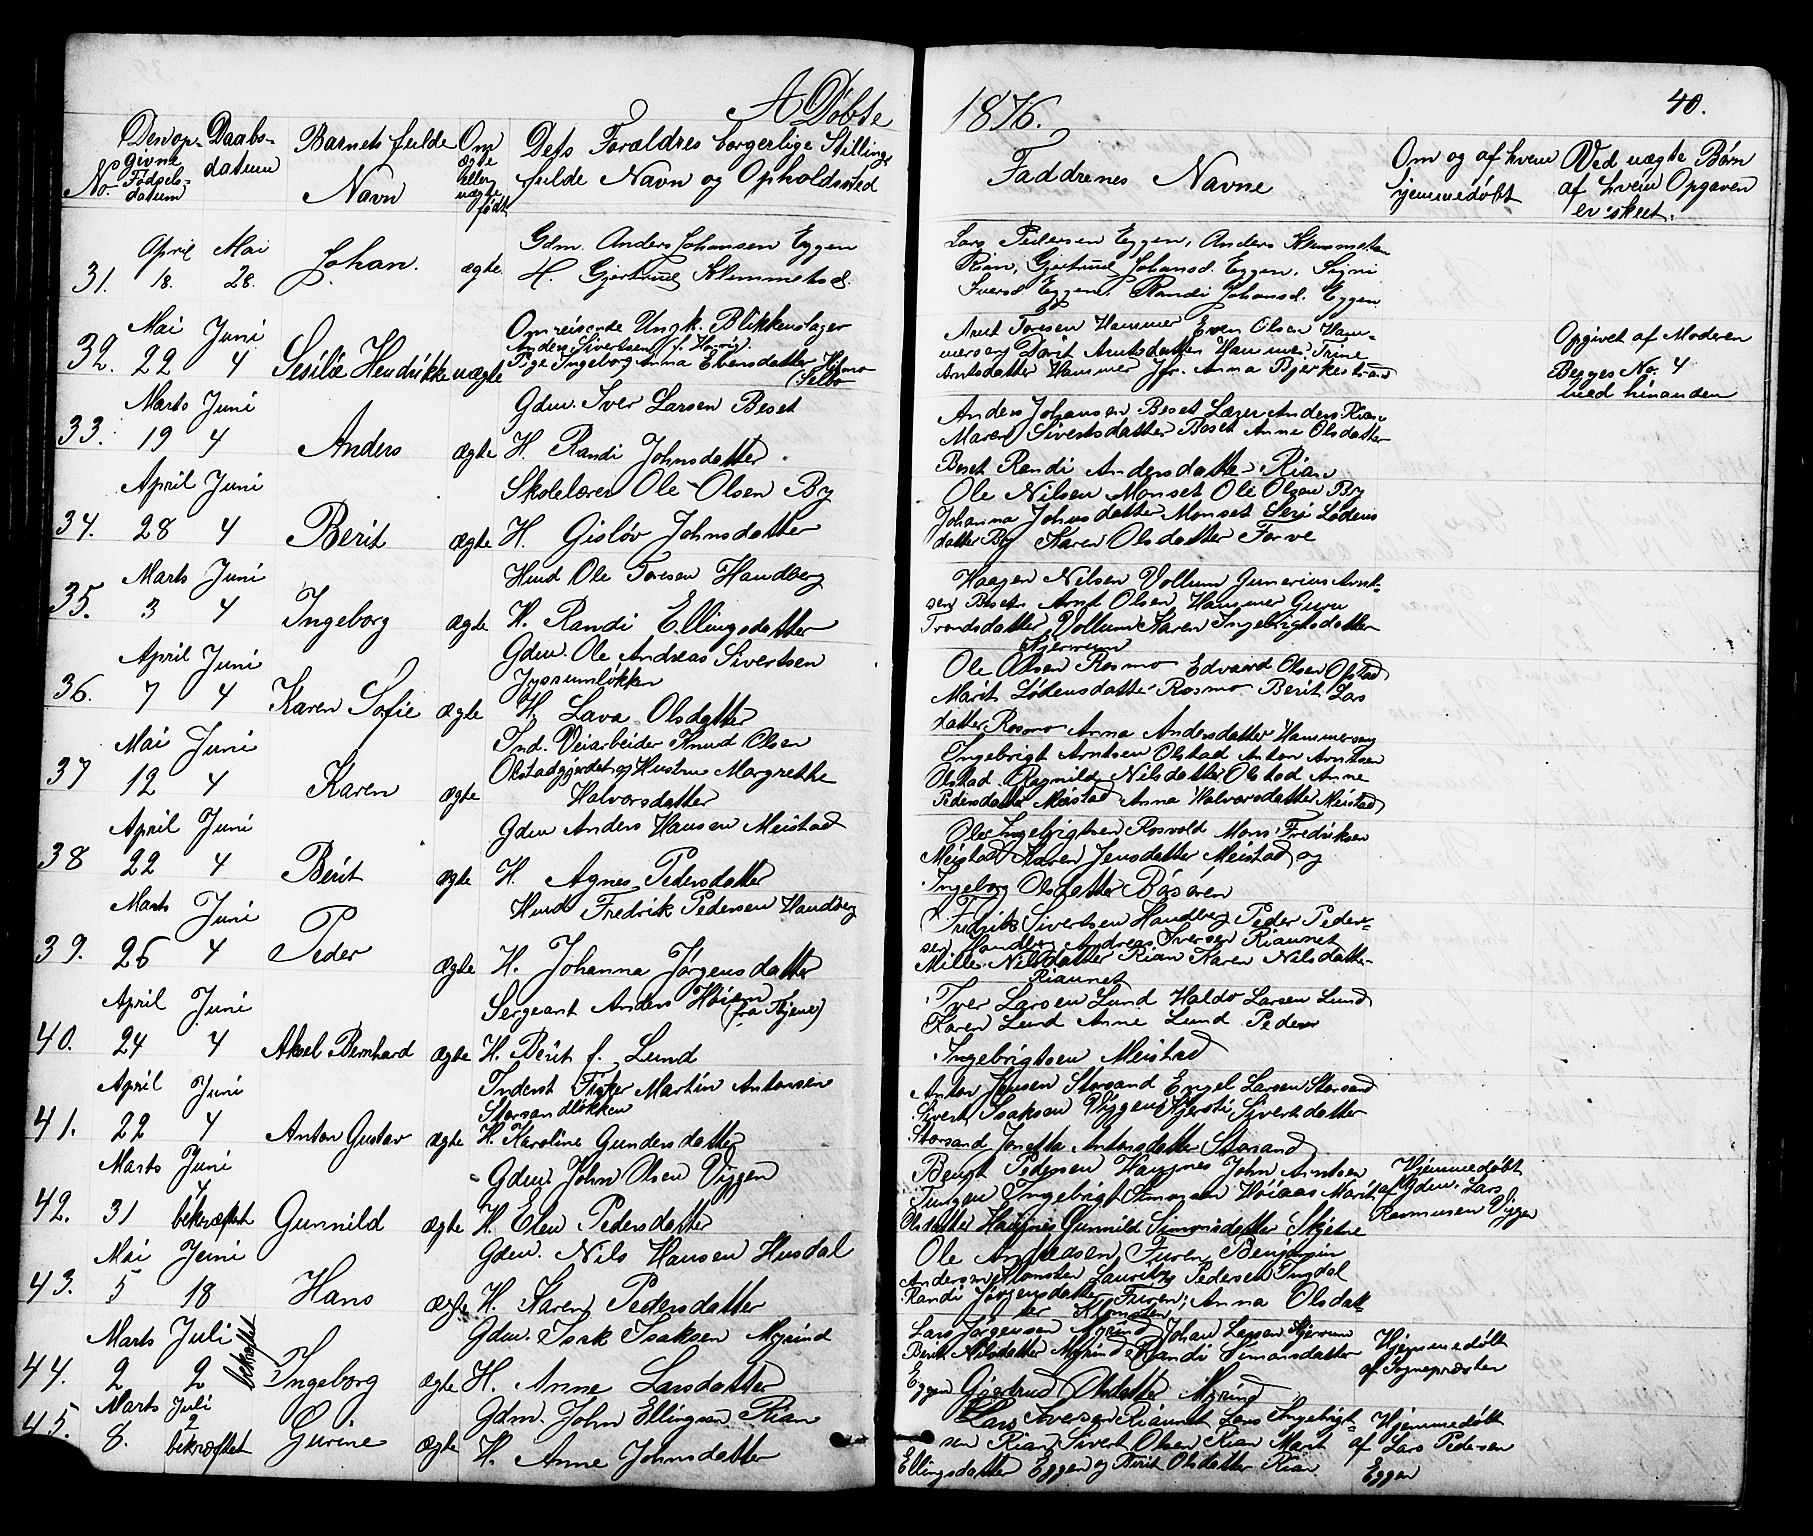 A Døbte
1876.
40.
No
Den op-
givne
Fødsels-
datum
Daabs-
datum
Barnets fulde
Navn
Om
ægte
eller
uægte
født
Dets Forældres borgerlige Stilling
fulde Navn og Opholdssted
Faddrenes Navne
Om og af hvem
hjemmedøbt
Ved uægte Børn
af hvem Opgaven
er skeet.
31. April 18. Mai 28. Johan. ægte
Gdm. Anders Johansen Eggen
H. Gjertrud Klemmetsd.
Lars Pedersen Eggen, Anders Klemmetsen
Rian, Gjertrud Johansd. Eggen, Signi
Iversd. Eggen. Randi Johansd. Eggen
32. Mai 22 Juni 4 Sesilie Hendrikke uægte
Omreisende Ungk. Blikkenslager
Anders Sivertsen
Pige Ingeborg Anna Evensdatter
Selbo
Arnt Toresen Hammer Even Olsen Ham-
mersen Dorit Arntsdatter Hammer. Trine
Arntsdatter Hammer Jfr. Anna Bjerkestrand
Opgivet af Moderen
Begges No. 4
med hinanden
33. Marts 19 Juni 4 Anders ægte
Gdm. Iver Larsen Beset
H. Randi Johnsdatter
Anders Johansen Beset Anders Rian
Maren Sivertsdatter Beset Anne Olsdatter
Beset Randi Andersdatter Rian
34. April 28 Juni 4 Berit ægte
Skolelærer Ole Olsen By
H. Gisløv Johnsdatter
Ole Nilsen Monset Ole Olsen By
Johanna Johnsdatter Monset Seri Lødens
datter By Karen Olsdatter Forve
35. Marts 3 Juni 4 Ingeborg ægte
Husd Ole Toresen Handberg
H. Randi Ellingsdatter
Haagen Nilsen Vollum Gunerius Arnt-
sen Beset Arnt Olsen Hammer Guru
Trondsdatter Vollum Karen Ingebrigtsdatter
Hjerrum
36. April 7 Juni 4 Karen Sofie ægte
Gdm. Ole Andreas Sivertsen
H. Lava Olsdatter
Ole Olsen Rosmo Edvard Olsen Olstad
Marit Lødensdatter Rosmo Berit Lars
datter Rosmo Anna Andersdatter
37 Mai 12 Juni 4 Karen ægte
Ind. Veiarbeider Knud Olsen
Olstadgjerdet og Hustru Margrethe
Halvorsdatter
Ingebrigt Arntsen Olstad Anton Arntsen
Olstad Ragnild Nilsdatter Olstad Anne
Pedersdatter Meistad Anna Halvorsdatter Meistad
38 April 22 Juni 4 Berit ægte
Gdm Anders Hansen Meistad
H. Agnes Pedersdatter
Ole Ingebrigtsen Rosvold Mons Fredriksen
Meistad Karen Jensdatter Meistad og
Ingeborg Olsdatter Bøsøren
39. Marts 26 Juni 4 Peder ægte
Husd Fredrik Pedersen Handberg
H. Johanna Jørgensdatter
Fredrik Sivertsen Handberg Peder Peder-
sen Handberg Andreas Iversen Riaunet
Mille Nilsdatter Rian Karen Nilsdatter
Riaunet
40. April 24 Juni 4 Aksel Bernhard ægte
Sergeant Anders Høiem
H. Berit f. Lund
Iver Larsen Lund Haldo Larsen Lund
Karen Lund Anne Lund Peder
Ingebrigtsen Meistad
41. April 22 Juni 4 Anton Gustav ægte
Inderst Fisker Martin Antonsen
Storsandløkken
H. Karoline Gundersdatter
Anton Jensen Storsand Engel Larsen Storsand
Sivert Isaksen Viggen Kjersti Sivertsdatter
Storsand Jonetta Antonsdatter Storsand
42. Marts 31 Juni 4 bekræftet Gunnild ægte
Gdm. John Olsen Viggen
H. Elen Pedersdatter
Bengt Pedersen Haugnes John Arntsen
Ingebrigt Simonsen Høiaas Marit
Olsdatter Haugnes Gunnild Simonsdatter Skjetne
Hjemmedøbt
af Gdm. Lars
Rasmusen Viggen
43. Mai 5 Juni 18 Hans ægte
Gdm. Nils Hansen Husdal
H. Karen Pedersdatter
Ole Andresen Furen Benjamin
Andersen Lauritz Pedersen Indal
Randi Jørgensdatter Furen, Anna Olsdat-
ter
44. Marts 2 Juli 2 bekræftet Ingeborg ægte
Gdm. Isak Isaksen Myrind
H. Anne Larsdatter
Lars Jørgensen Myrind Johan Larsen Hjerrum
Berit Nilsdatter Myrind Randi Simonsdatter
Eggen Gjertrud Olsdatter Myrind
Hjemmedøbt
af Sognepræsten
45. Marts 8. Juli 2 bekræftet Gurine ægte
Gdm. John Ellingsen Rian
H. Anne Johnsdatter
Lars Iversen Riaunet Lars Ingebrigt-
sen Rian Sivert Olsen Rian Marit
Ellingsdatter Eggen og Berit Olsdatter Rian
Hjemmedøbt
af Lars Pedersen
Eggen